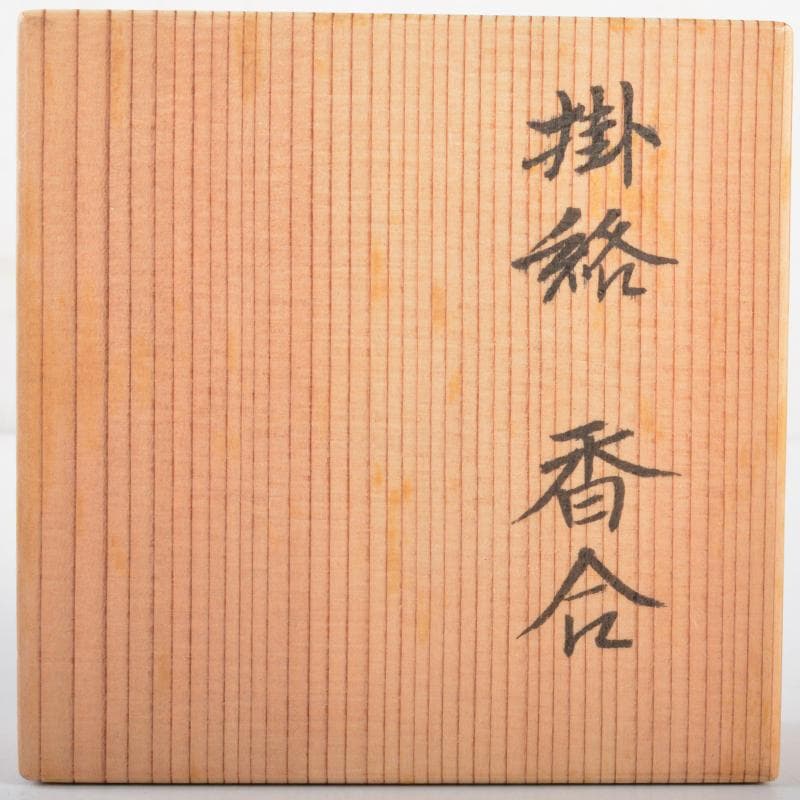 掛絡 香合